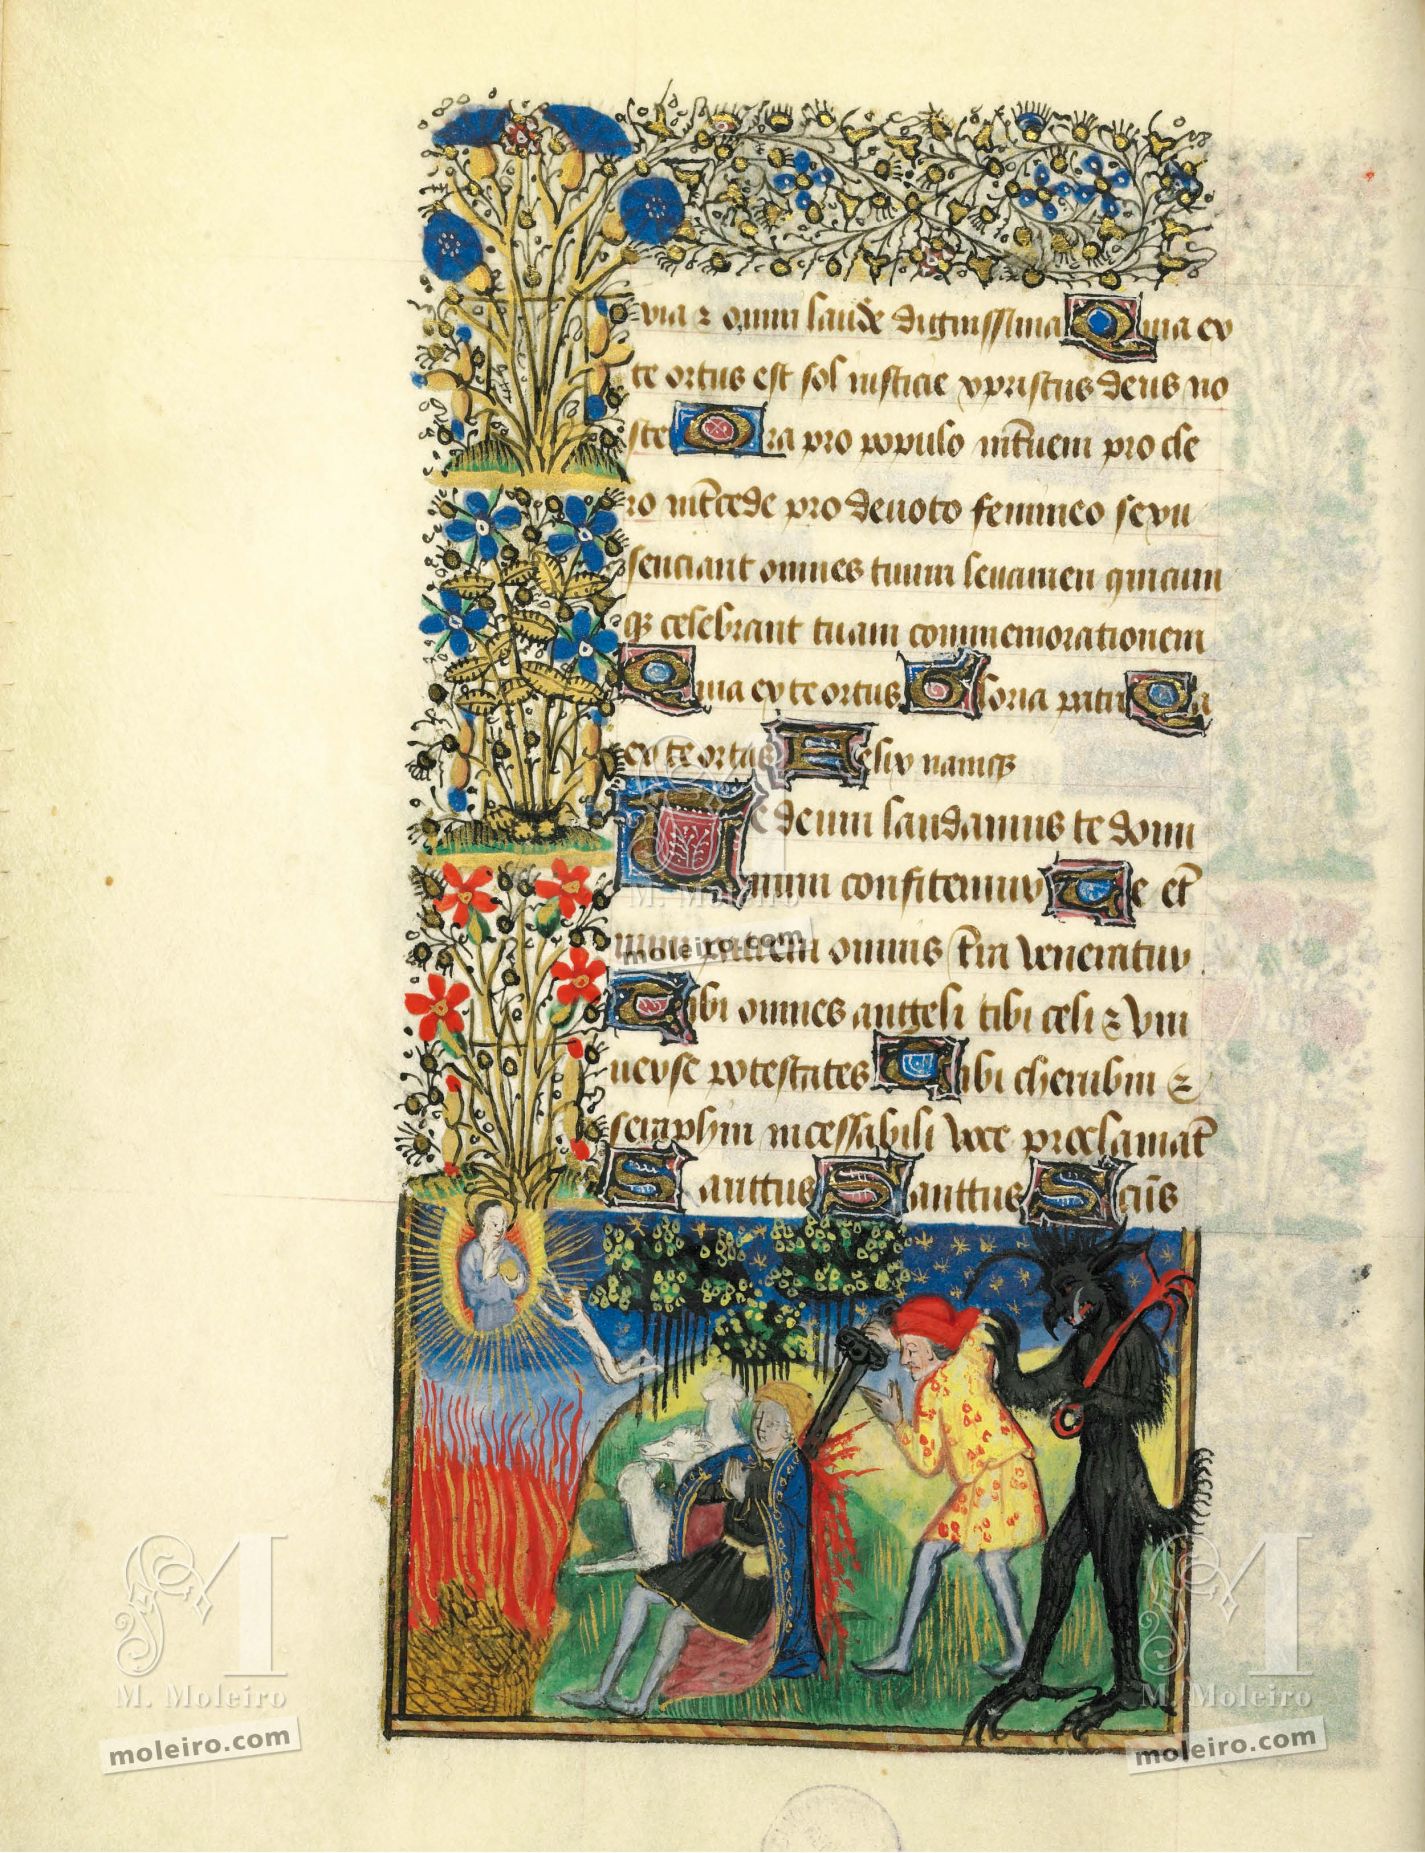 uia ⁊ omni laude dignissima Quia ex
te ortus est sol iusticie xpristus deus no
ster Ora pro populo int̄ueni pro cle
ro int̄cede pro deuoto femineo sexu
senciant omnes tuum leuamen quicum
qꝫ celebrant tuam commemorationem
Quia ex te ortus Gloria patri Qa
ex te ortus Felix namqꝫ
Te deum laudamus te domi
num confitemur Te et̄
num patrem omnis t̄ra veneratur
Tibi omnes angeli tibi celi ⁊ vni
uerse potestates Tibi cherubin ⁊
seraphin incessabili voce proclamāt
Santtus Santtus Sc̄us
M. Moleiro
moleiro.com
M. Moleiro
moleiro.com
M. Moleiro
moleiro.com